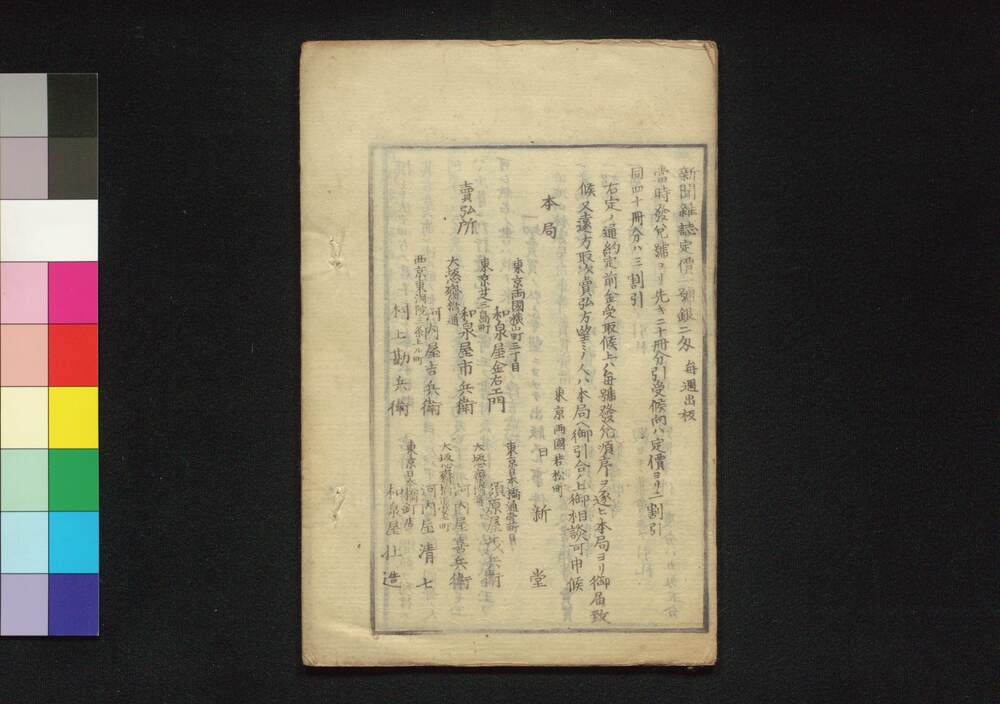 新聞雜誌定價一號銀二匁 每週出板
當時發兌號ヨリ先キ二十冊分引受候向ハ定價ヨリ二割引
同四十冊分ハ三割引
右定ノ通約定前金受取候上ハ每號發兌順序ヲ逐ヒ本局ヨリ御届致
候又遠方取次賣弘方望ミノ人ハ本局ヘ御引合ノ上御相談可申候
東京両國若松町
本局 日新堂
賣弘所
東京両國橫山町三丁目
和泉屋金右エ門
東京芝三島町
和泉屋市兵衛
大坂心齋橋通
河内屋吉兵衛
西京東洞院三条上ル町
村上勘兵衛
東京日本橋通壹町目
須原屋茂兵衛
大坂心齋橋
河内屋喜兵衛
大坂心齋橋
河内屋清七
東京
和泉屋壮造